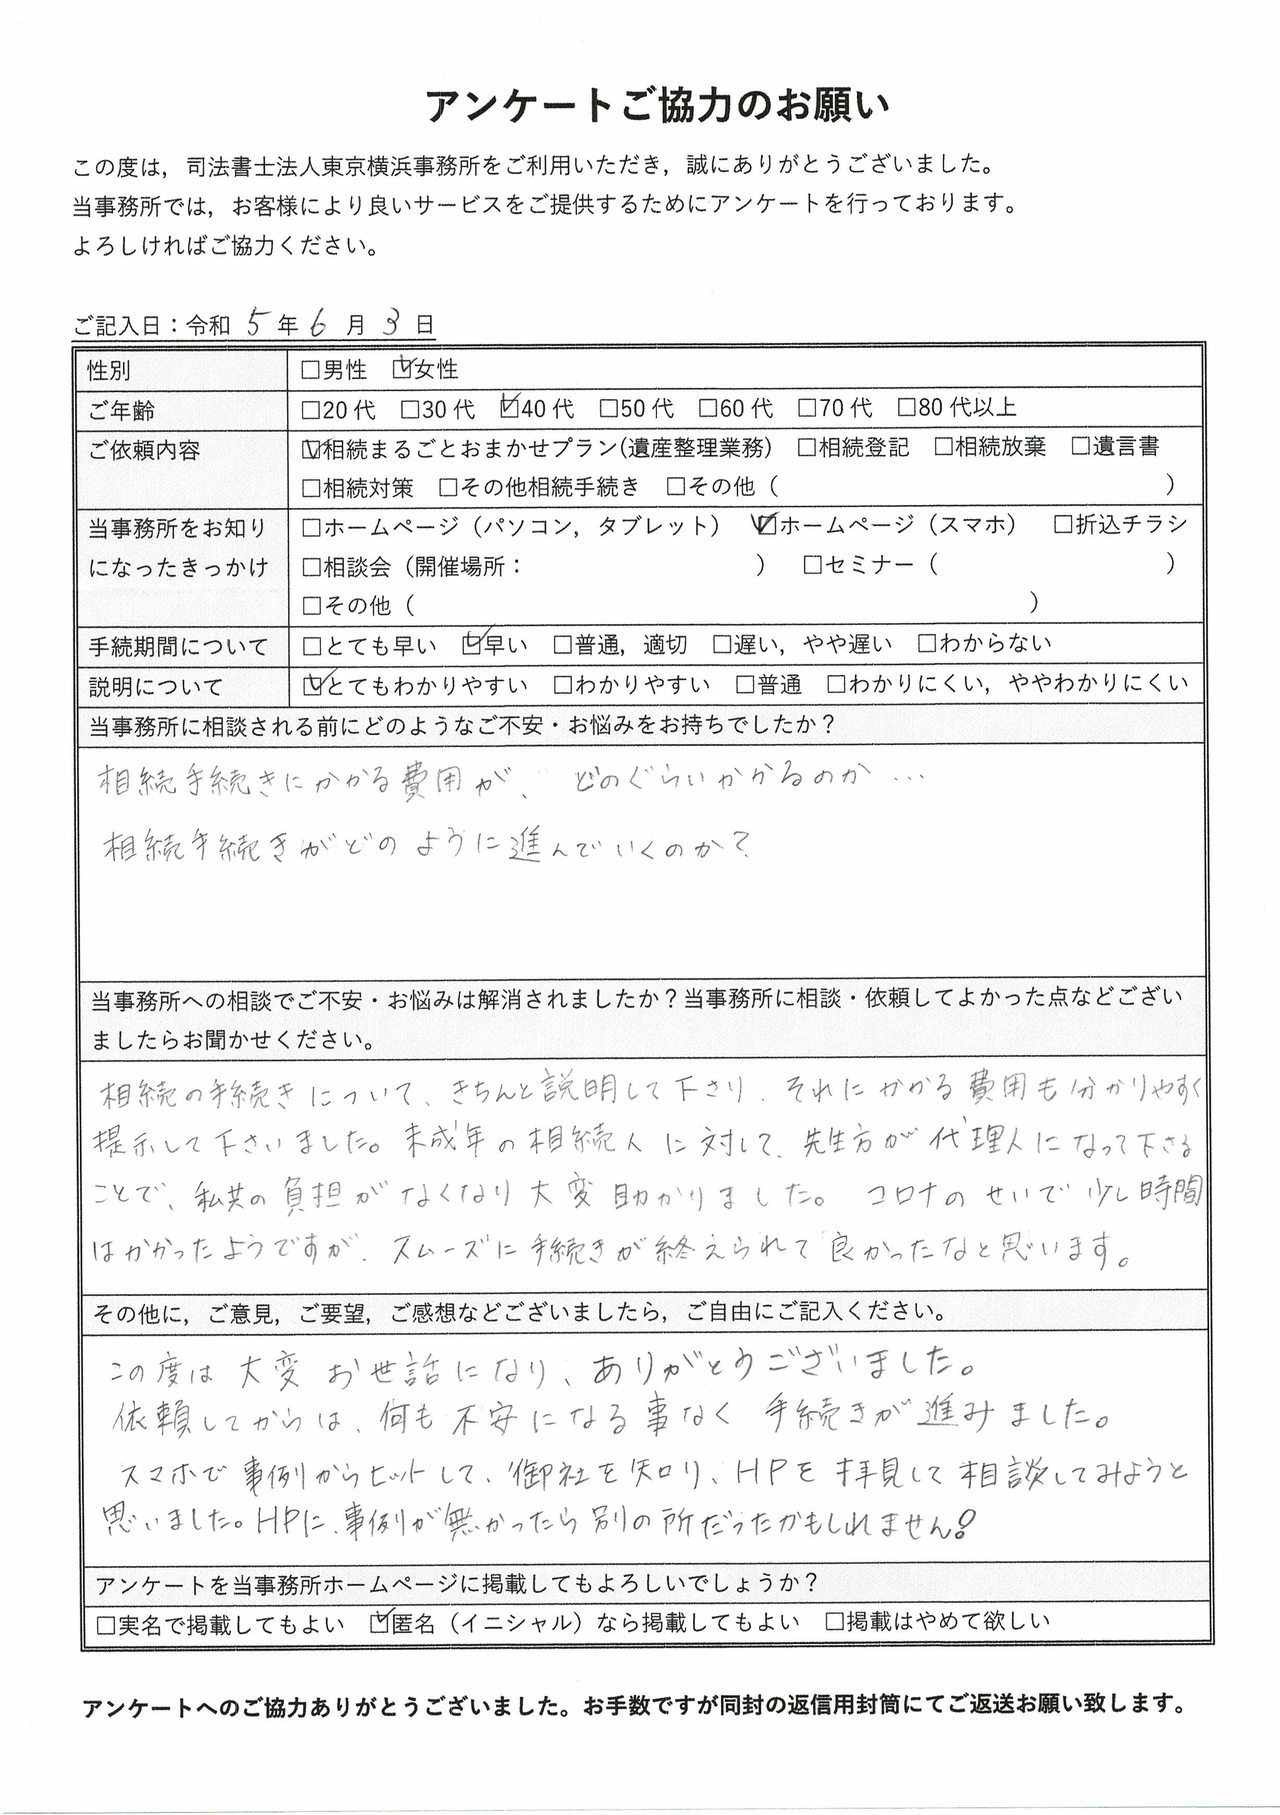 アンケートご協力のお願い
この度は，司法書士法人東京横浜事務所をご利用いただき，誠にありがとうございました。
当事務所では，お客様により良いサービスをご提供するためにアンケートを行っております。
よろしければご協力ください。
ご記入日：令和 5 年 6 月 3 日
性別 □男性 ☑女性
ご年齢 □20代 □30代 ☑40代 □50代 □60代 □70代 □80代以上
ご依頼内容 ☑相続まるごとおまかせプラン(遺産整理業務) □相続登記 □相続放棄 □遺言書
□相続対策 □その他相続手続き □その他（ ）
当事務所をお知り □ホームページ（パソコン，タブレット） ☑ホームページ（スマホ） □折込チラシ
になったきっかけ □相談会（開催場所： ） □セミナー（ ）
□その他（ ）
手続期間について □とても早い ☑早い □普通，適切 □遅い，やや遅い □わからない
説明について ☑とてもわかりやすい □わかりやすい □普通 □わかりにくい，ややわかりにくい
当事務所に相談される前にどのようなご不安・お悩みをお持ちでしたか？
相続手続きにかかる費用が、どのぐらいかかるのか…
相続手続きがどのように進んでいくのか？
当事務所への相談でご不安・お悩みは解消されましたか？当事務所に相談・依頼してよかった点などござい
ましたらお聞かせください。
相続の手続きについて、きちんと説明して下さり、それにかかる費用も分かりやすく
提示して下さいました。未成年の相続人に対して、先生方が代理人になって下さる
ことで、私共の負担がなくなり大変助かりました。コロナのせいで少し時間
はかかったようですが、スムーズに手続きが終えられて良かったなと思います。
その他に，ご意見，ご要望，ご感想などございましたら，ご自由にご記入ください。
この度は大変お世話になり、ありがとうございました。
依頼してからは、何も不安になる事なく手続きが進みました。
スマホで事例からヒットして、御社を知り、HPを拝見して相談してみようと
思いました。HPに、事例が無かったら別の所だったかもしれません!
アンケートを当事務所ホームページに掲載してもよろしいでしょうか？
□実名で掲載してもよい ☑匿名（イニシャル）なら掲載してもよい □掲載はやめて欲しい
アンケートへのご協力ありがとうございました。お手数ですが同封の返信用封筒にてご返送お願い致します。